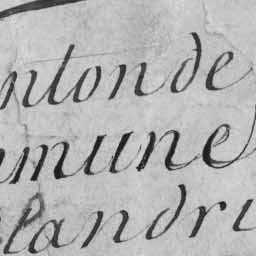 nton de
mmune
landri